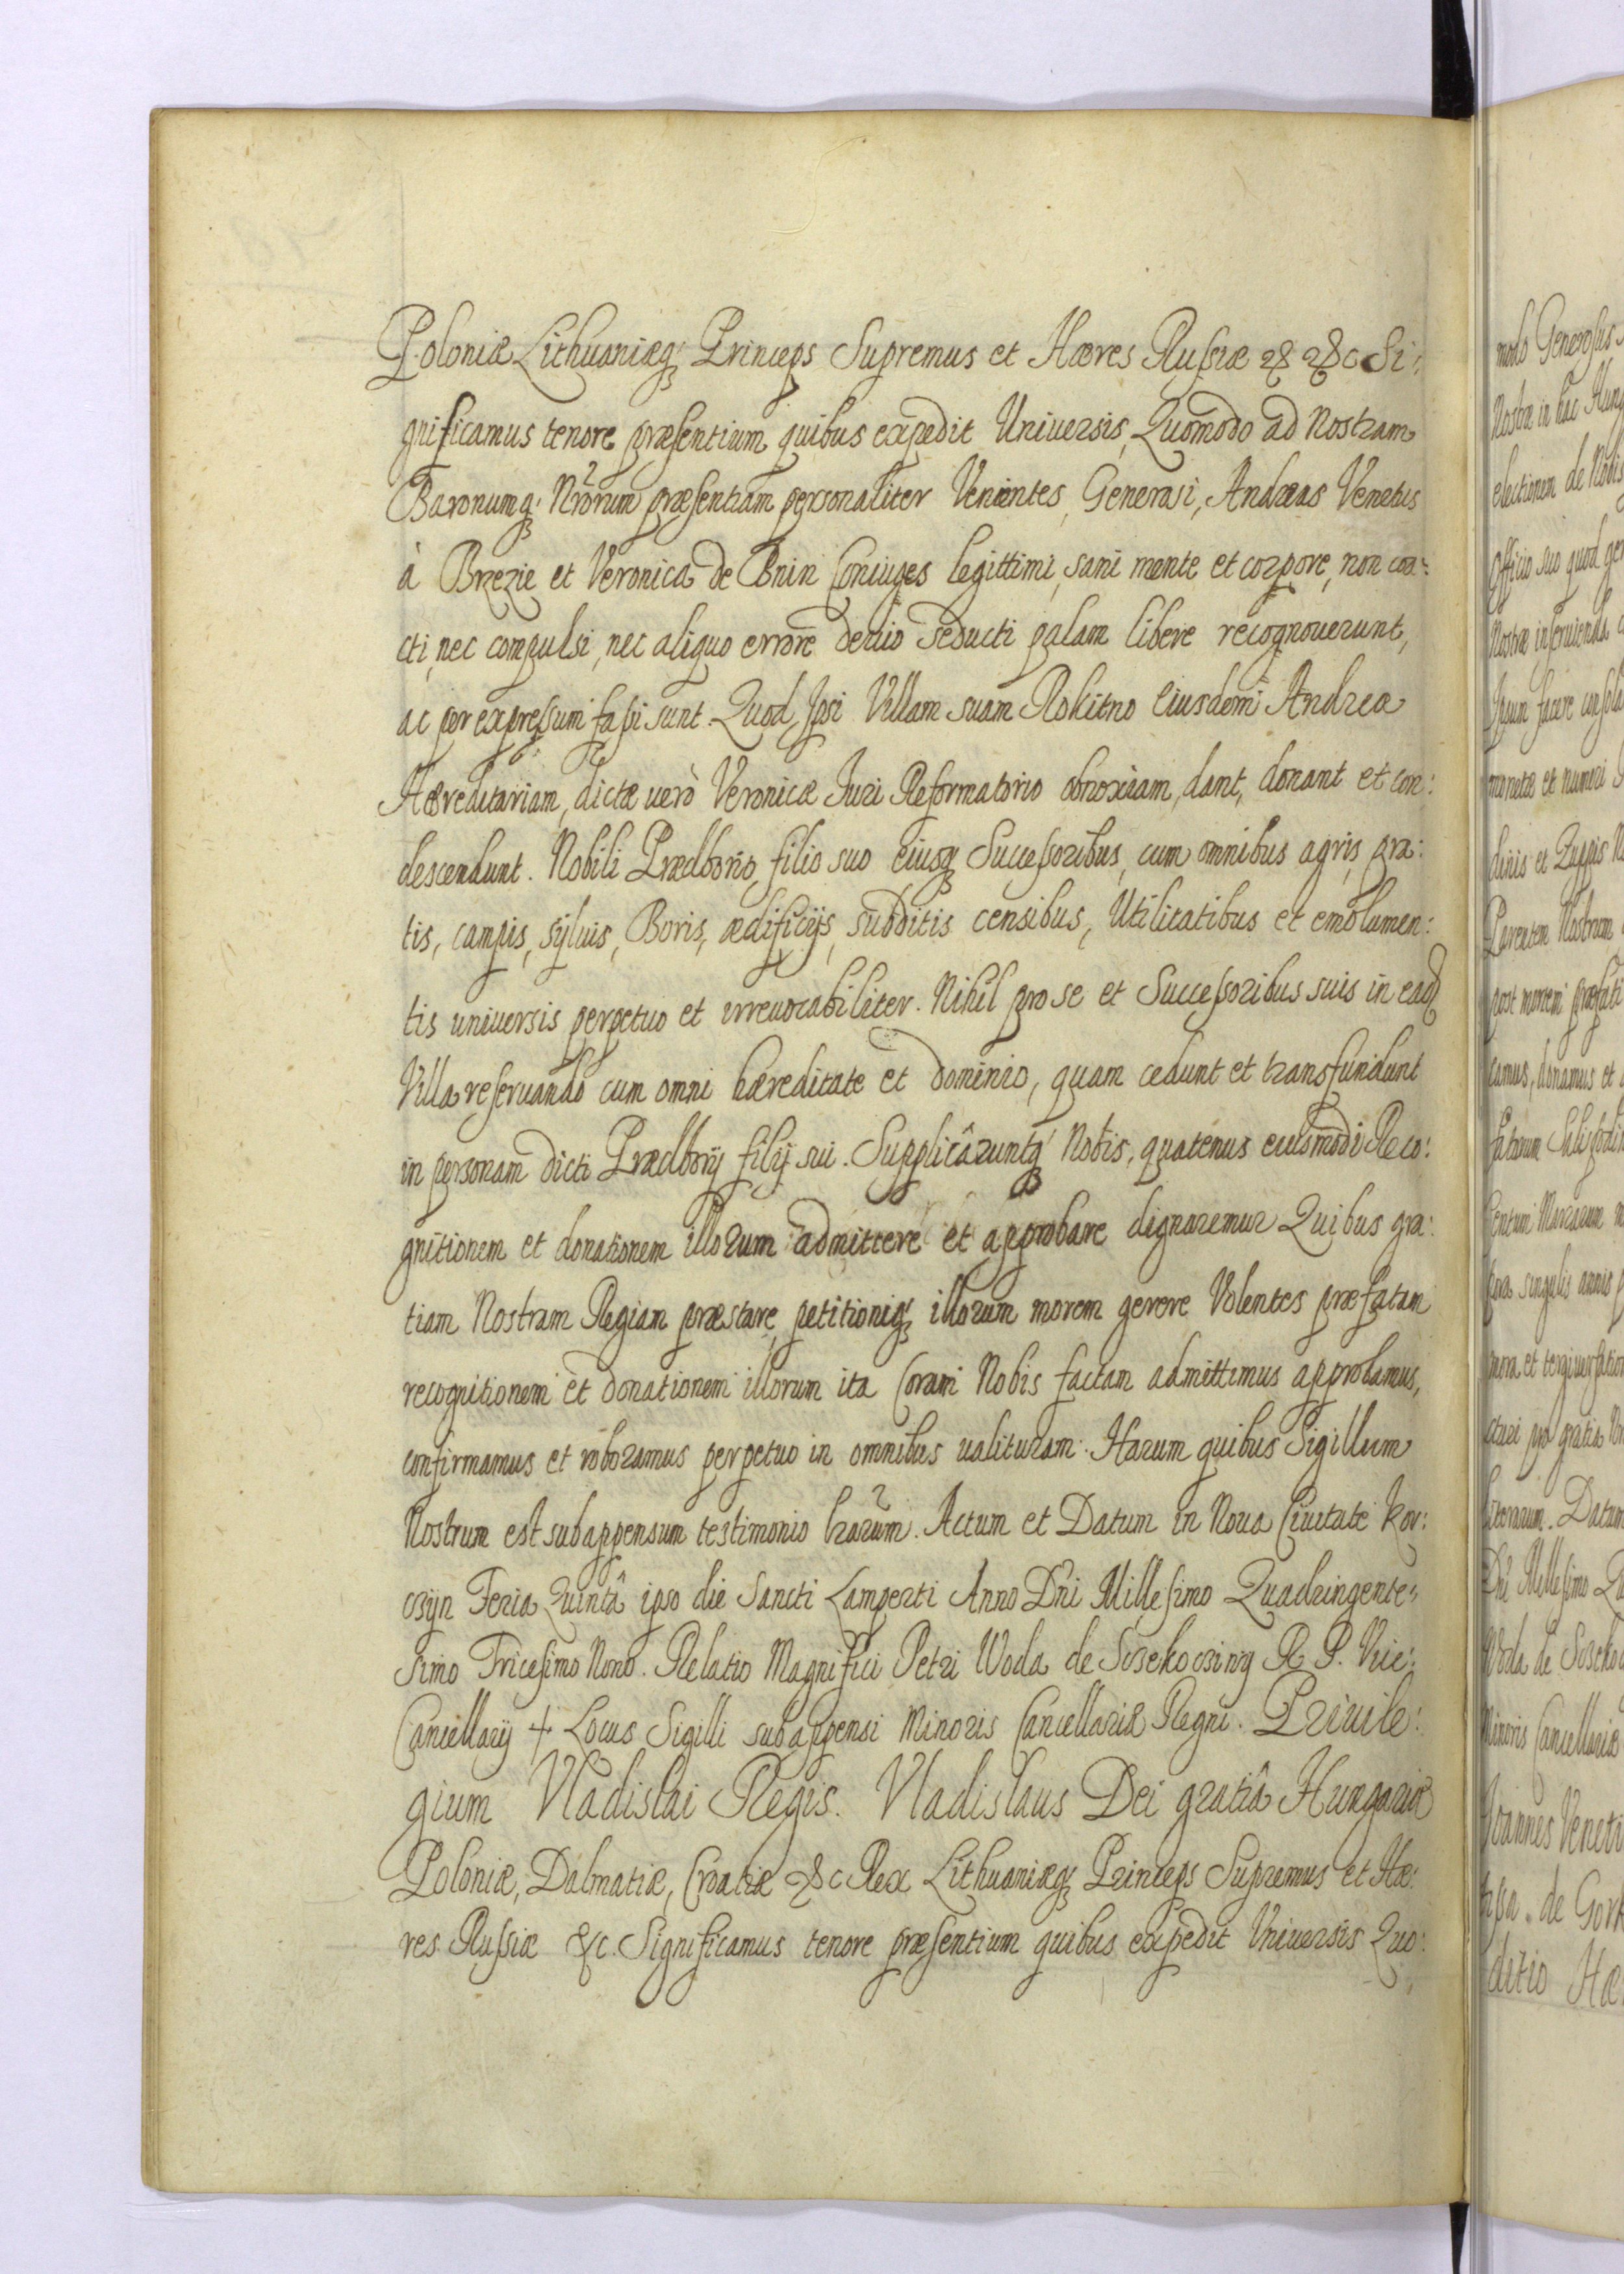 Poloniæ Lithuaniæq; Princeps Supremus et Hæres Russiæ &c &c Si:
gnificamus tenore præsentium quibus expedit Universis, Quomodo ad Nostram
Baronumq; Nrorum præsentiam personaliter Venientes, Generosi, Andreas Venetus
à Brezie et Veronica de Bnin Coniuges legittimi, sani mente et corpore, non coa:
cti, nec compulsi, nec aliquo errore devio seducti palam libere recognouerunt,
ac per expressum fassi sunt. Quod Ipsi Villam suam Rokitno Eiusdem Andrea
Hæreditariam, dictæ uerò Veronicæ Iuri Reformatorio obnoxiam, dant, donant et con:
descendunt. Nobili Prædborio, filio suo eiusq; Successoribus, cum omnibus agris, pra:
tis, campis, syluis, Boris, ædificijs, subditis censibus, Utilitatibus et emolumen:
tis universis perpetuo et irreuocabiliter. Nihil pro se et Successoribus suis in eadē
Villa reseruando cum omni hæreditate et dominio, quam cedunt et transfundunt
in personam dicti Prædborij filij sui. Supplicâruntq; Nobis, quatenus eiusmodi Reco:
gnitionem et donationem illorum admittere et approbare dignaremur Quibus gra:
tiam Nostram Regiam præstare, petitioniq; illorum morem gerere Volentes præfatam
recognitionem et donationem illorum ita Coram Nobis factam admittimus approbamus,
confirmamus et roboramus perpetuo in omnibus ualituram. Harum quibus Sigillum
Nostrum est subappensum testimonio lrarum. Actum et Datum in Noua Ciuitate Kor:
czyn Feria Quintâ ipso die Sancti Lamperti Anno Dni Millesimo Quadringente:
simo Tricesimo Nono. Relatio Magnifici Petri Woda de Sczekocziny R. P. Vice:
Cancellarij + Locus Sigilli subappensi Minoris Cancellariæ Regni. Priuile:
gium Vladislai Regis. Vladislaus Dei gratiâ Hungariæ
Poloniæ, Dalmatiæ, Croatiæ &c Rex Lithuaniæq; Princeps Supremus et Hæ:
res Russiæ &c. Significamus tenore præsentium quibus expedit Vniuersis Quo: